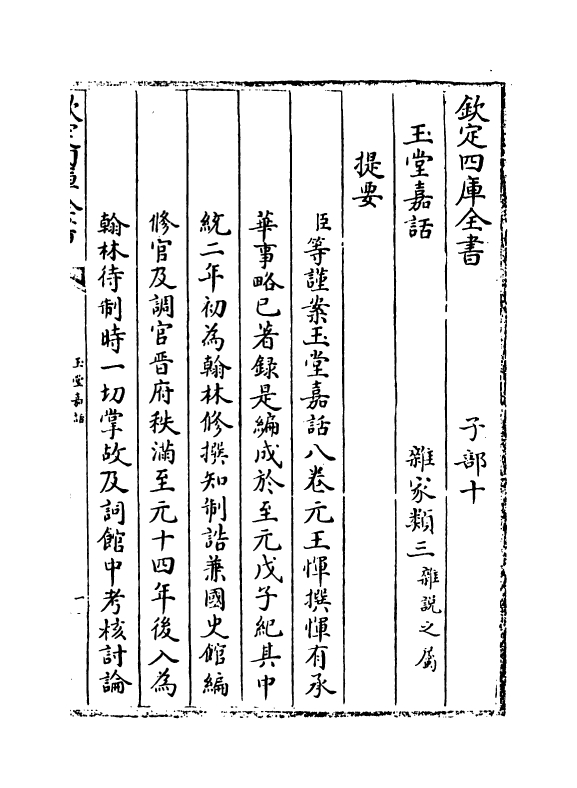 欽定四庫全書　子部十
玉堂嘉話　雜家類三雜說之屬
提要
臣等謹案玉堂嘉話八卷元王惲撰惲有承
華事略已著録是編成於至元戊子紀其中
統二年初為翰林修撰知制誥兼國史館編
修官及調官晉府秩滿至元十四年後入為
翰林待制時一切掌故及詞館中考核討論
玉堂嘉話
一